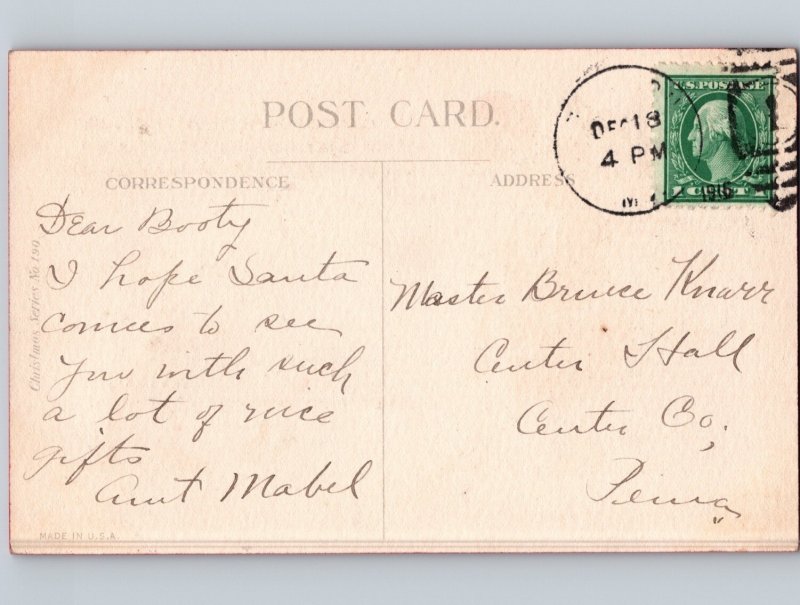 POST CARD.
CORRESPONDENCE
ADDRESS
DEC 18
4 PM
1916
U.S. POSTAGE
1 CENT 1
Dear Booty
I hope Santa
comes to see
you with such
a lot of nice
gifts
Aunt Mabel
Master Bruce Knarr
Center Hall
Center Co,
Penna
Christmas Series No 190
MADE IN U.S.A.